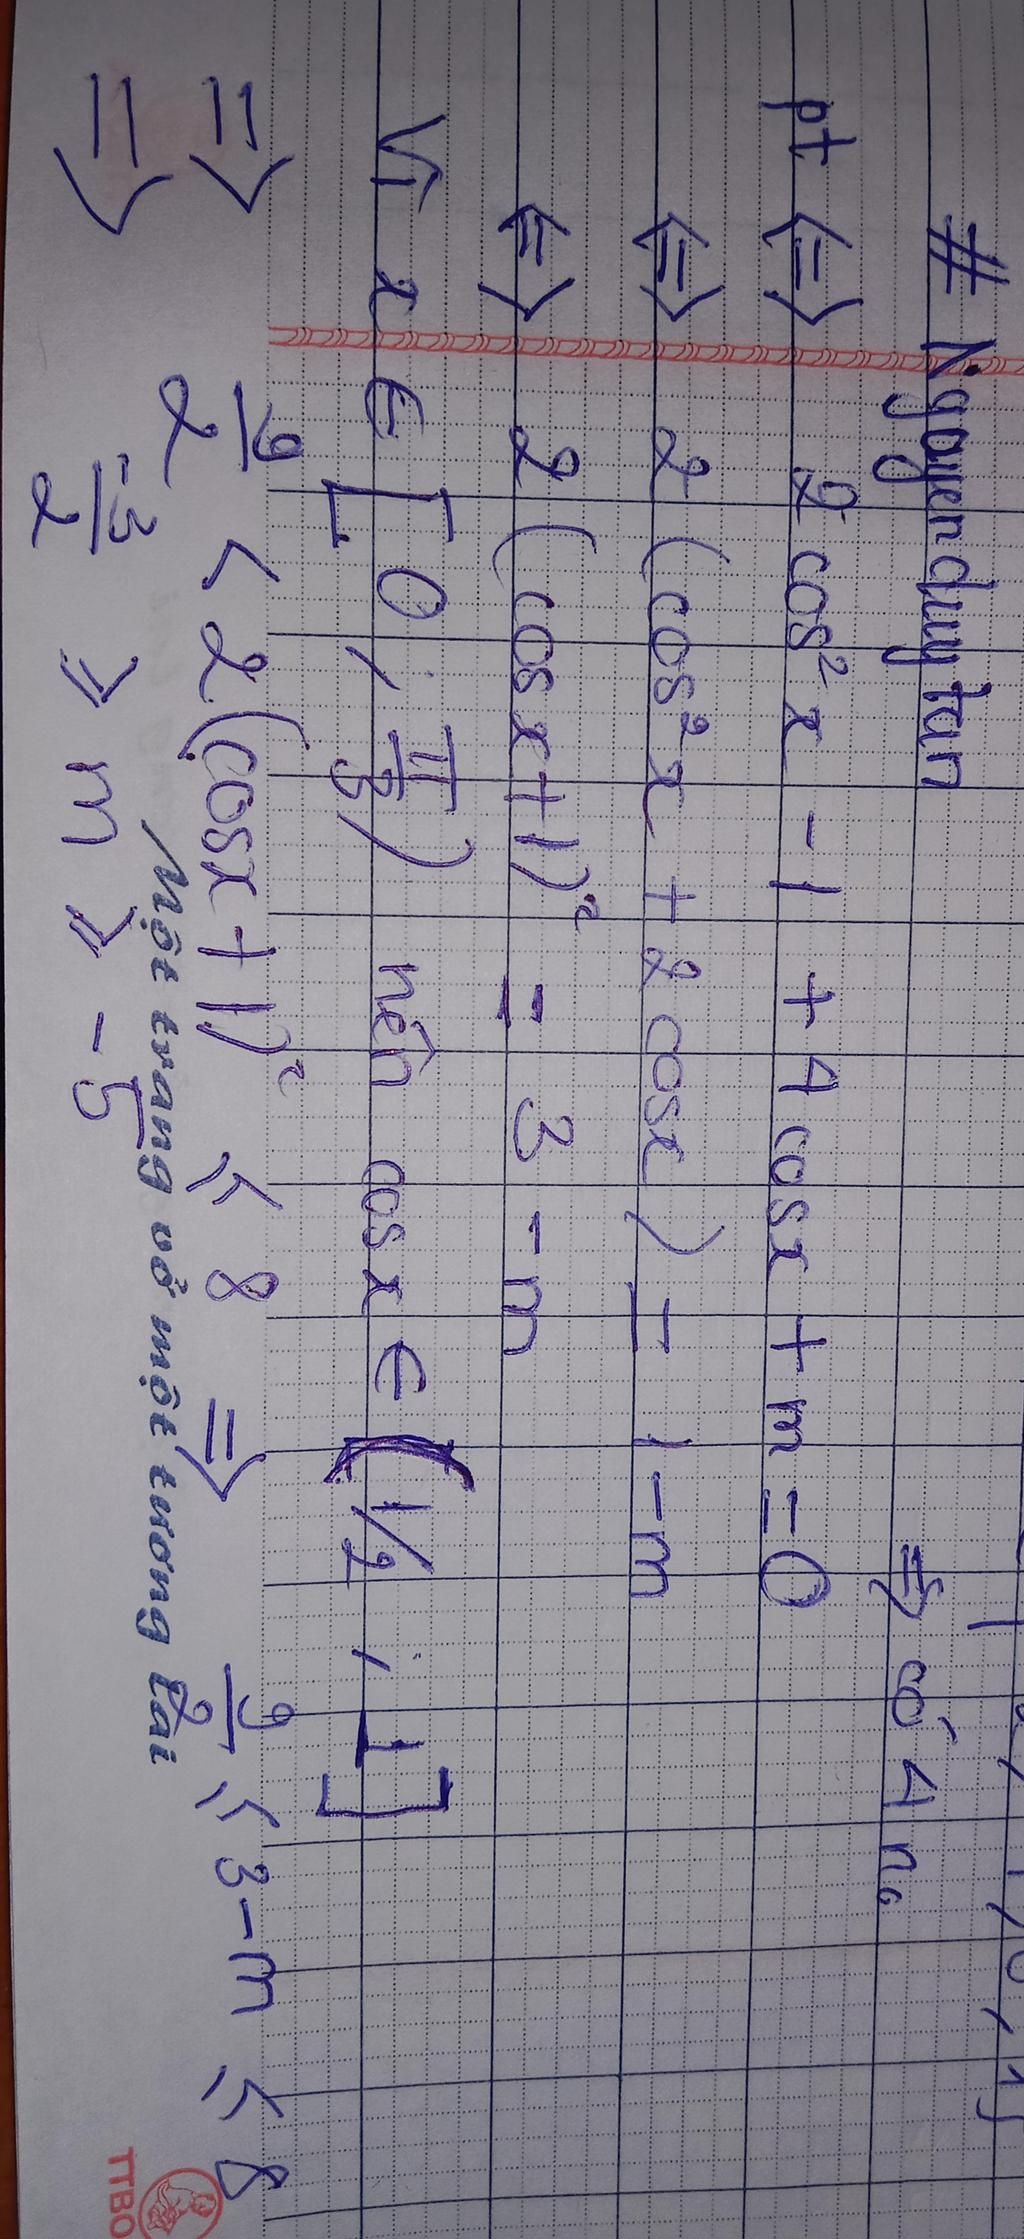 ⇒ có 4 no
# Nguyenduytan
pt ⇔ 2cos²x - 1 + 4cosx + m = 0
⇔ 2(cos²x + 2cosx) = 1 - m
⇔ 2(cosx+1)² = 3 - m
Vì x ∈ [0; π/3) nên cosx ∈ (1/2; 1]
⇒ 9/2 < 2(cosx+1)² ≤ 8 ⇒ 9/2 ≤ 3-m ≤ 8
Một trang vở một tương lai
⇒ -3/2 ≥ m ≥ -5
TTBO